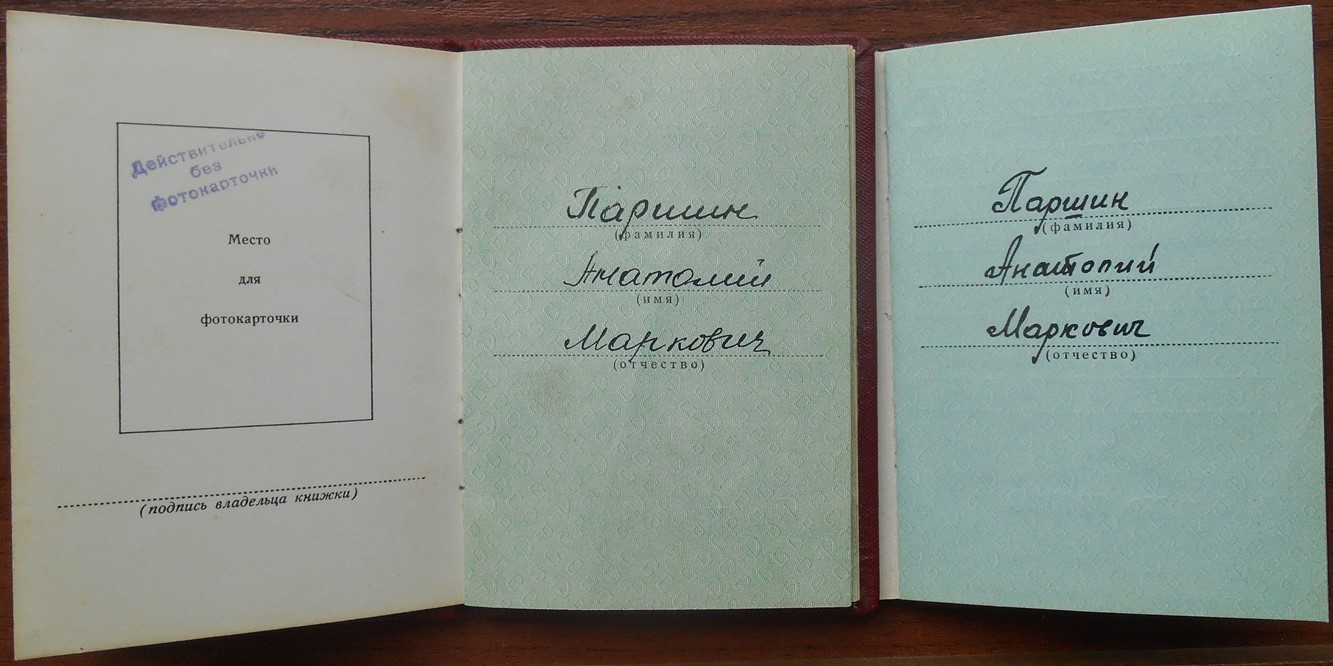 Действительно
без
фотокарточки
Место
для
фотокарточки
(подпись владельца книжки)
Паршин
(фамилия)
Анатолий
(имя)
Маркович
(отчество)
Паршин
(фамилия)
Анатолий
(имя)
Маркович
(отчество)